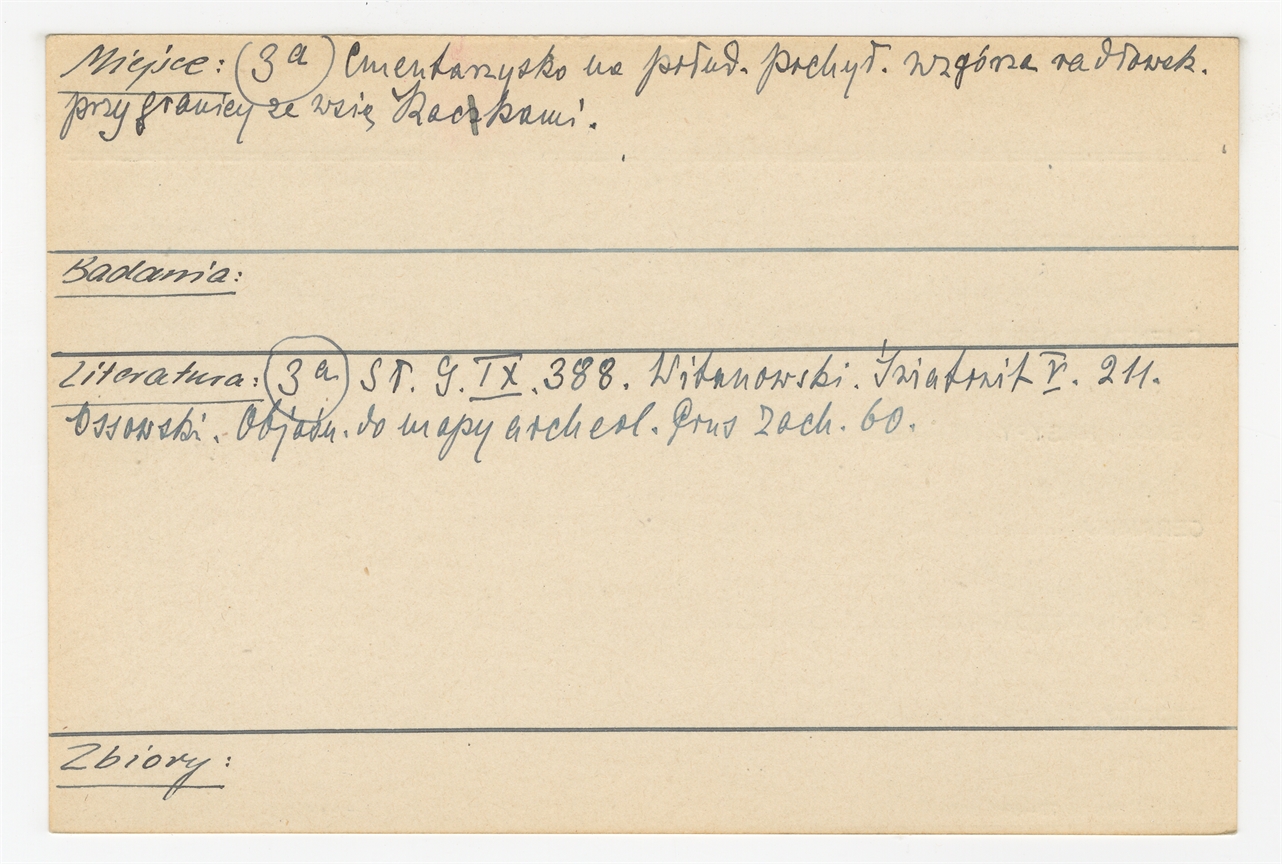 Miejsce: (3a) Cmentarzysko na połud. pochył. wzgórza radłowsk.
przy granicy ze wsią Raczkami.
Badania:
Literatura: (3a) Sł. G. IX. 388. Witanowski. Światowit V. 211.
Ossowski. Objaśn. do mapy archeol. Prus Zach. 60.
Zbiory: